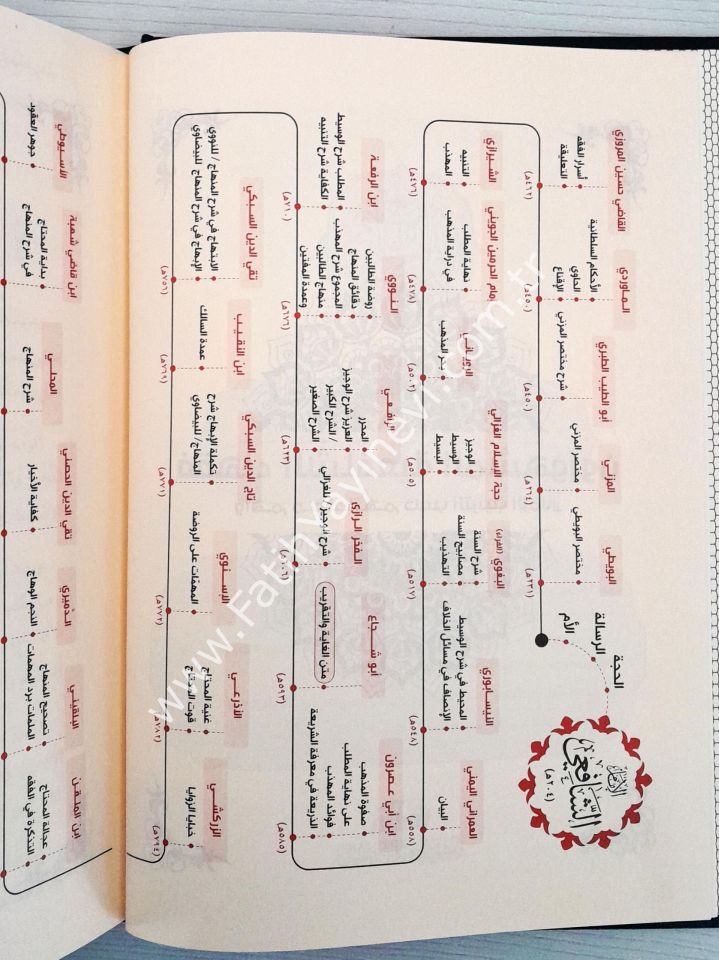 الإمام
الشافعي
(٢٠٤هـ)
الحجة
الرسالة
الأم
البويطي
مختصر البويطي
(٢٣١هـ)
المزني
مختصر المزني
(٢٦٤هـ)
أبو الطيب الطبري
شرح مختصر المزني
(٤٥٠هـ)
الماوردي
الأحكام السلطانية
الحاوي
الإقناع
(٤٥٠هـ)
القاضي حسين المروزي
أسرار الفقه
التعليقة
(٤٦٢هـ)
الشيرازي
التنبيه
المهذب
(٤٧٦هـ)
إمام الحرمين الجويني
نهاية المطلب
في دراية المذهب
(٤٧٨هـ)
الروياني
بحر المذهب
(٥٠٢هـ)
حجة الإسلام الغزالي
الوجيز
الوسيط
البسيط
(٥٠٥هـ)
البغوي (الفراء)
شرح السنة
مصابيح السنة
التهذيب
(٥١٧هـ)
النيسابوري
المحيط في شرح الوسيط
الإنصاف في مسائل الخلاف
(٥٤٨هـ)
العمراني اليمني
البيان
(٥٥٨هـ)
ابن أبي عصرون
صفوة المذهب
على نهاية المطلب
فوائد المهذب
الذريعة في معرفة الشريعة
(٥٨٥هـ)
أبو شجاع
متن الغاية والتقريب
(٥٩٣هـ)
الفخر الرازي
شرح الوجيز/ للغزالي
(٦٠٦هـ)
الرافعي
المحرر
العزيز شرح الوجيز
/ الشرح الكبير
الشرح الصغير
(٦٢٣هـ)
النووي
روضة الطالبين
دقائق المنهاج
المجموع شرح المهذب
منهاج الطالبين
وعمدة المفتين
(٦٧٦هـ)
ابن الرفعة
المطلب شرح الوسيط
الكفاية شرح التنبيه
(٧١٠هـ)
تقي الدين السبكي
الابتهاج في شرح المنهاج / للنووي
الإبهاج في شرح المنهاج للبيضاوي
(٧٥٦هـ)
ابن النقيب
عمدة السالك
(٧٦٩هـ)
تاج الدين السبكي
تكملة الإبهاج شرح
المنهاج/ للبيضاوي
(٧٧١هـ)
الإسنوي
المهمات على الروضة
(٧٧٢هـ)
الأذرعي
غنية المحتاج
قوت المحتاج
(٧٨٣هـ)
الزركشي
خبايا الزوايا
(٧٩٤هـ)
ابن الملقن
عجالة المحتاج
التذكرة في الفقه
البلقيني
تصحيح المنهاج
الملمات برد المهمات
الدميري
النجم الوهاج
تقي الدين الحصني
كفاية الأخيار
المحلي
شرح المنهاج
ابن قاضي شهبة
بداية المحتاج
في شرح المنهاج
الأسيوطي
جوهر العقود
www.Fatihyayinevi.com.tr